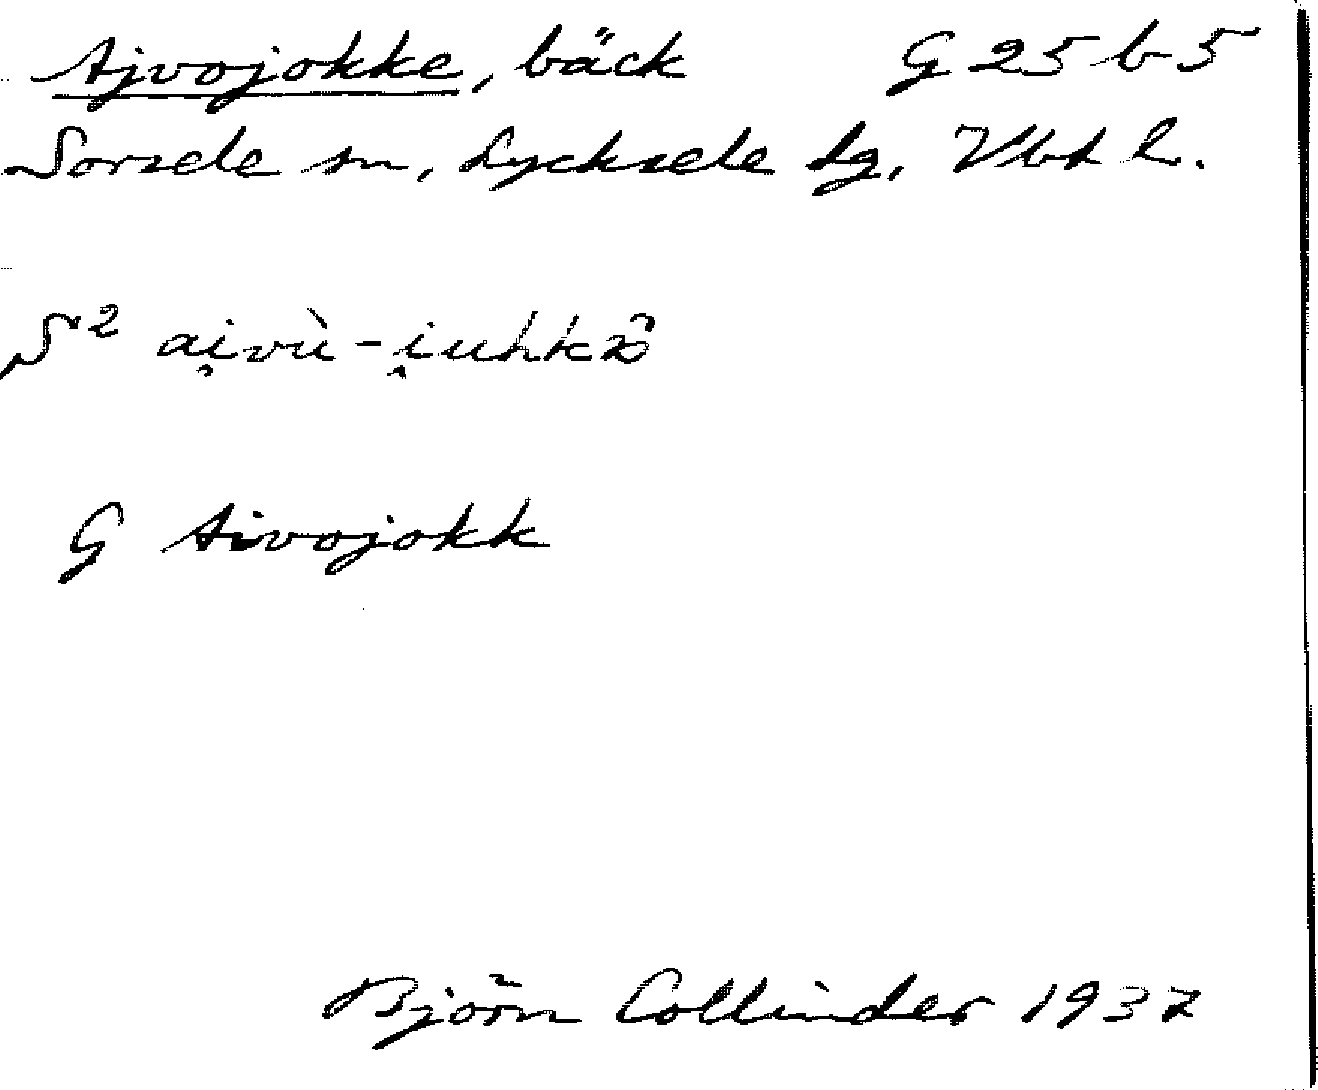 Ajvojokke, bäck G 25 b 5
Sorsele sn, Lycksele lg, Vbt l.
S² ai̯vù-i̯uhkə̂
G Aivojokk
Björn Collinder 1937